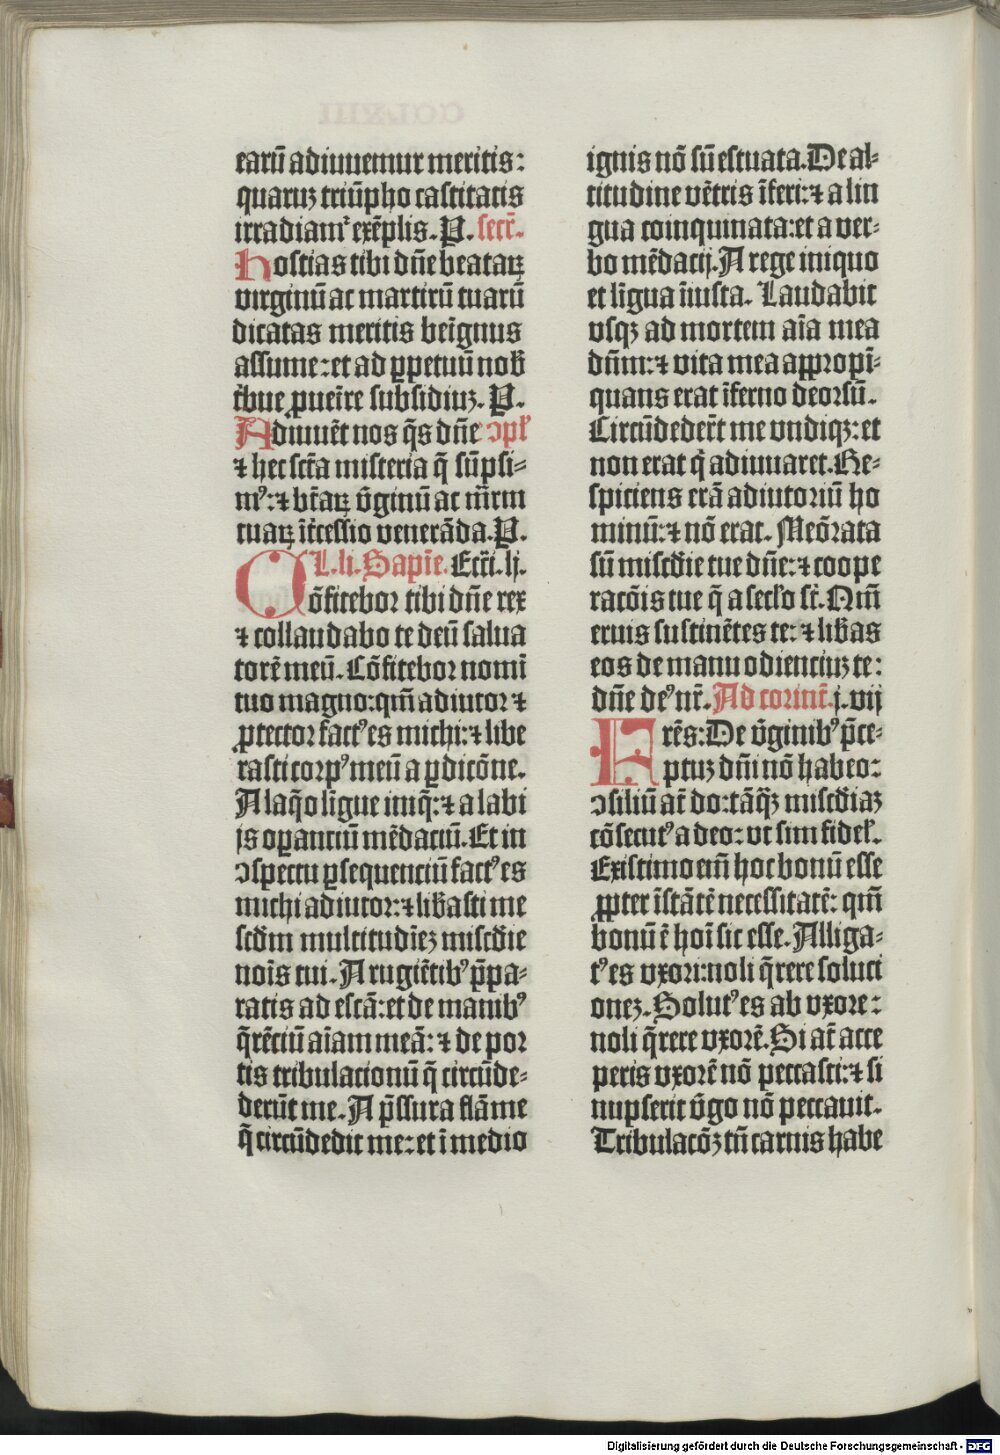 earū adiuuemur meritis:
quaruꝫ triūpho castitatis
irradiamᷣ exēplis. P. secᷣr.
Hostias tibi dn̄e beataꝝ
virginū ac martirū tuarū
dicatas meritis beīgnus
assume: et ad ꝑpetuū nob̄
tͥbue ꝓueīre subsidiuꝫ. P.
Adiuuēt nos q̄s dn̄e ↄpl̄
⁊ hec scr̄a misteria q̄ sūpsi-
mꝰ: ⁊ btāꝝ v̄ginū ac mr̄m
tuaꝝ īt̄cessio venerāda. P.
L. li. Sapīe. Eccͥi. lj.
Cōfitebor tibi dn̄e rex
⁊ collaudabo te deū salua
torē meū. Cōfitebor nomī
tuo magno: qm̄ adiutor ⁊
ꝓtector factꝰ es michi: ⁊ libe
rasti corpꝰ meū a ꝑdicōne.
A laq̄o līgue iniq̄: ⁊ a labi
js oꝑanciū mēdaciū. Et in
ↄspectu ꝑsequenciū factꝰ es
michi adiutor: ⁊ lib̄asti me
scd̄m multitudīeꝫ misc̄die
noīs tui. A rugiētibꝰ p̄pa-
ratis ad escā: et de manibꝰ
q̄rēciū aīam meā: ⁊ de por
tis tribulacionū q̄ circūde-
derūt me. A p̄ssura flāme
q̄ circūdedit me: et ī medio
ignis nō sū estuata. De al-
titudine vētris īferi: ⁊ a lin
gua coinquinata: et a ver-
bo mēdacij. A rege iniquo
et līgua īiusta. Laudabit
vsqꝫ ad mortem aīa mea
dn̄m: ⁊ vita mea aꝓpropī-
quans erat īferno deorsū.
Circūdeder̄t me vndiqꝫ: et
non erat q̄ adiuuaret. Re-
spiciens erā adiutoriū ho
minū: ⁊ nō erat. Meōrata
sū misc̄die tue dn̄e: ⁊ coope
racōis tue q̄ a secl̄o st̄. Qm̄
eruis sustinētes te: ⁊ lib̄as
eos de manu odienciuꝫ te:
dn̄e deꝰ nr̄. Ad corint̄. j. vij
Frēs: De v̄ginibꝰ p̄ce-
ptuꝫ dn̄i nō habeo:
ↄsiliū at̄ do: tāq̄ꝫ misc̄diaꝫ
cōsecutꝰ a deo: vt sim fidel̄.
Existimo em̄ hoc bonū esse
ꝓpter īstātē necessitatē: qm̄
bonū ē hoī sic esse. Alliga-
tꝰ es vxori: noli q̄rere soluci
oneꝫ. Solutꝰ es ab vxore:
noli q̄rere vxorē. Si at̄ acce
peris vxorē nō peccasti: ⁊ si
nupserit v̄go nō peccauit.
Tribulacōꝫ tn̄ carnis habe
Digitalisierung gefördert durch die Deutsche Forschungsgemeinschaft - DFG